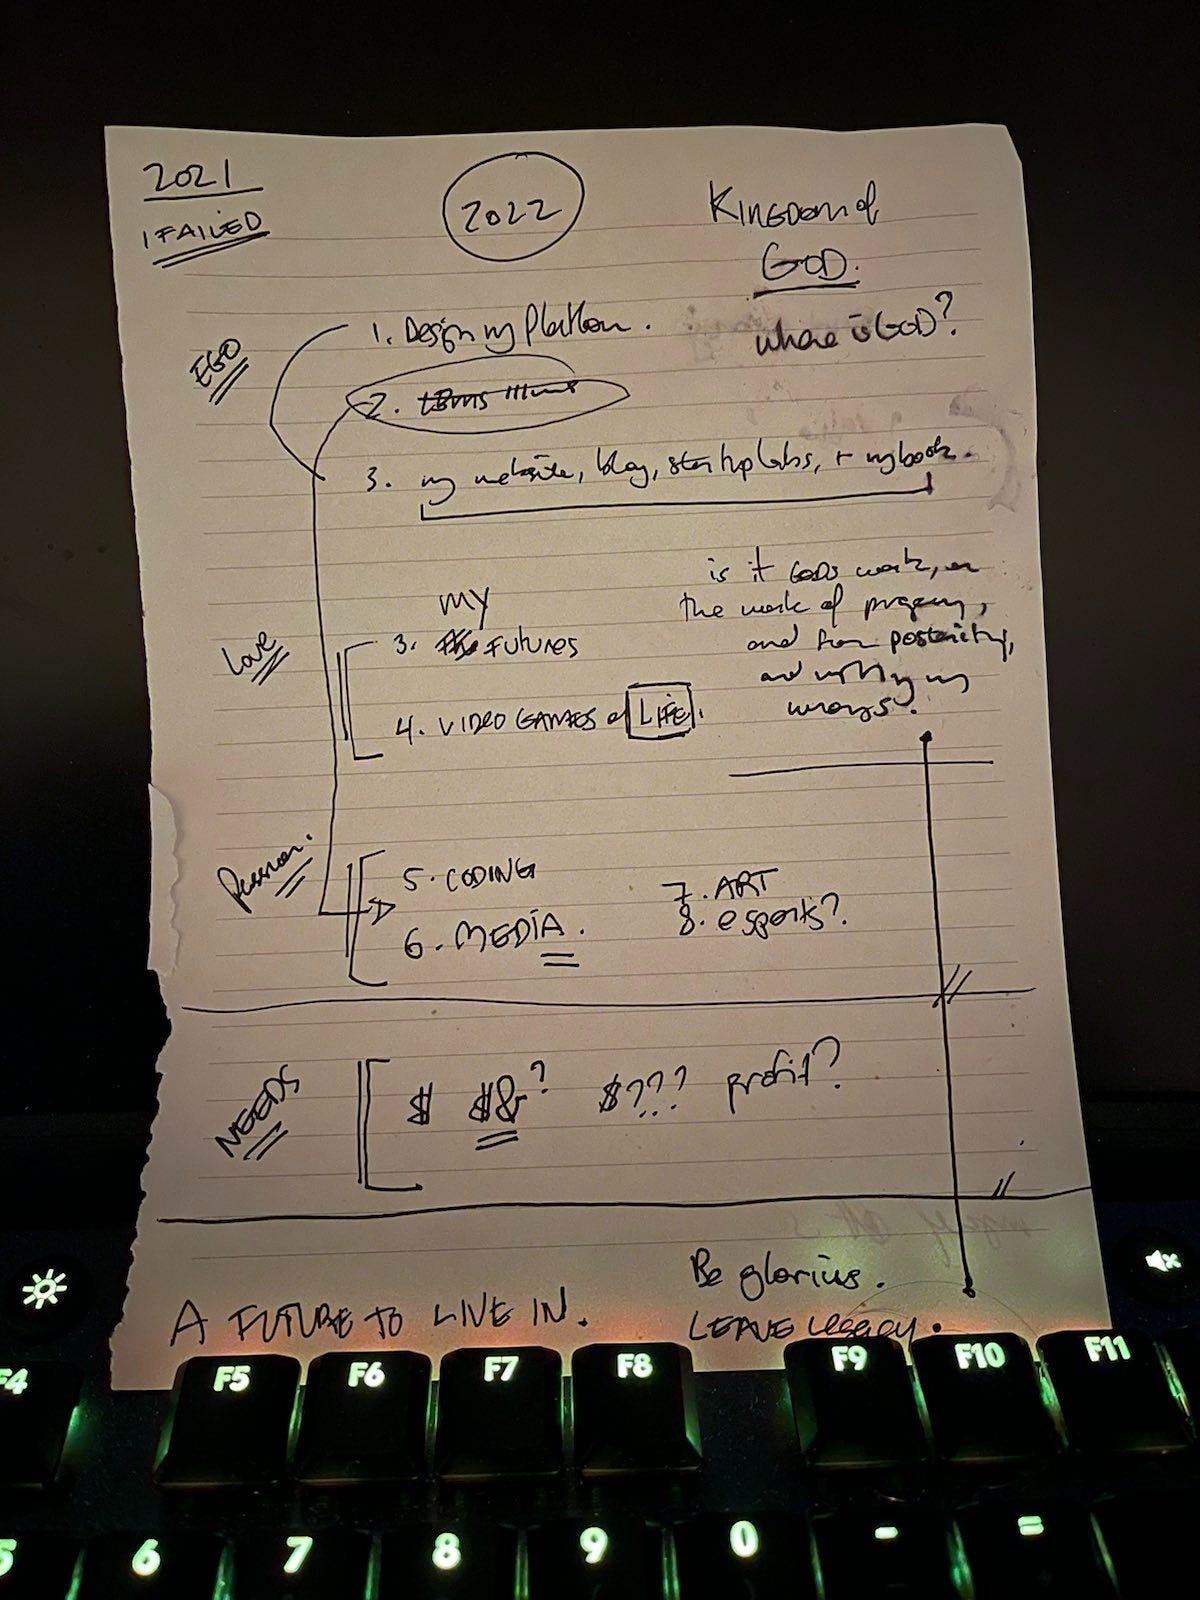 2021
I FAILED
2022
KINGDOM of
GOD.
where is GOD?
EGO
1. Design my Platform.
2.
3. my website, blog, startup labs, + my book.
is it GODs work, or
the work of progeny,
and for posterity,
and my
wrongs?
Love
my
3. FUTURES
4. VIDEO GAMES of LIFE.
Passion.
5. CODING
6. MEDIA.
7. ART
8. esports?
NEEDS
$ $&? $??? profit?
A FUTURE TO LIVE IN.
Be glorius.
LEAVE Legacy.
F4 F5 F6 F7 F8 F9 F10 F11
5 6 7 8 9 0 - =